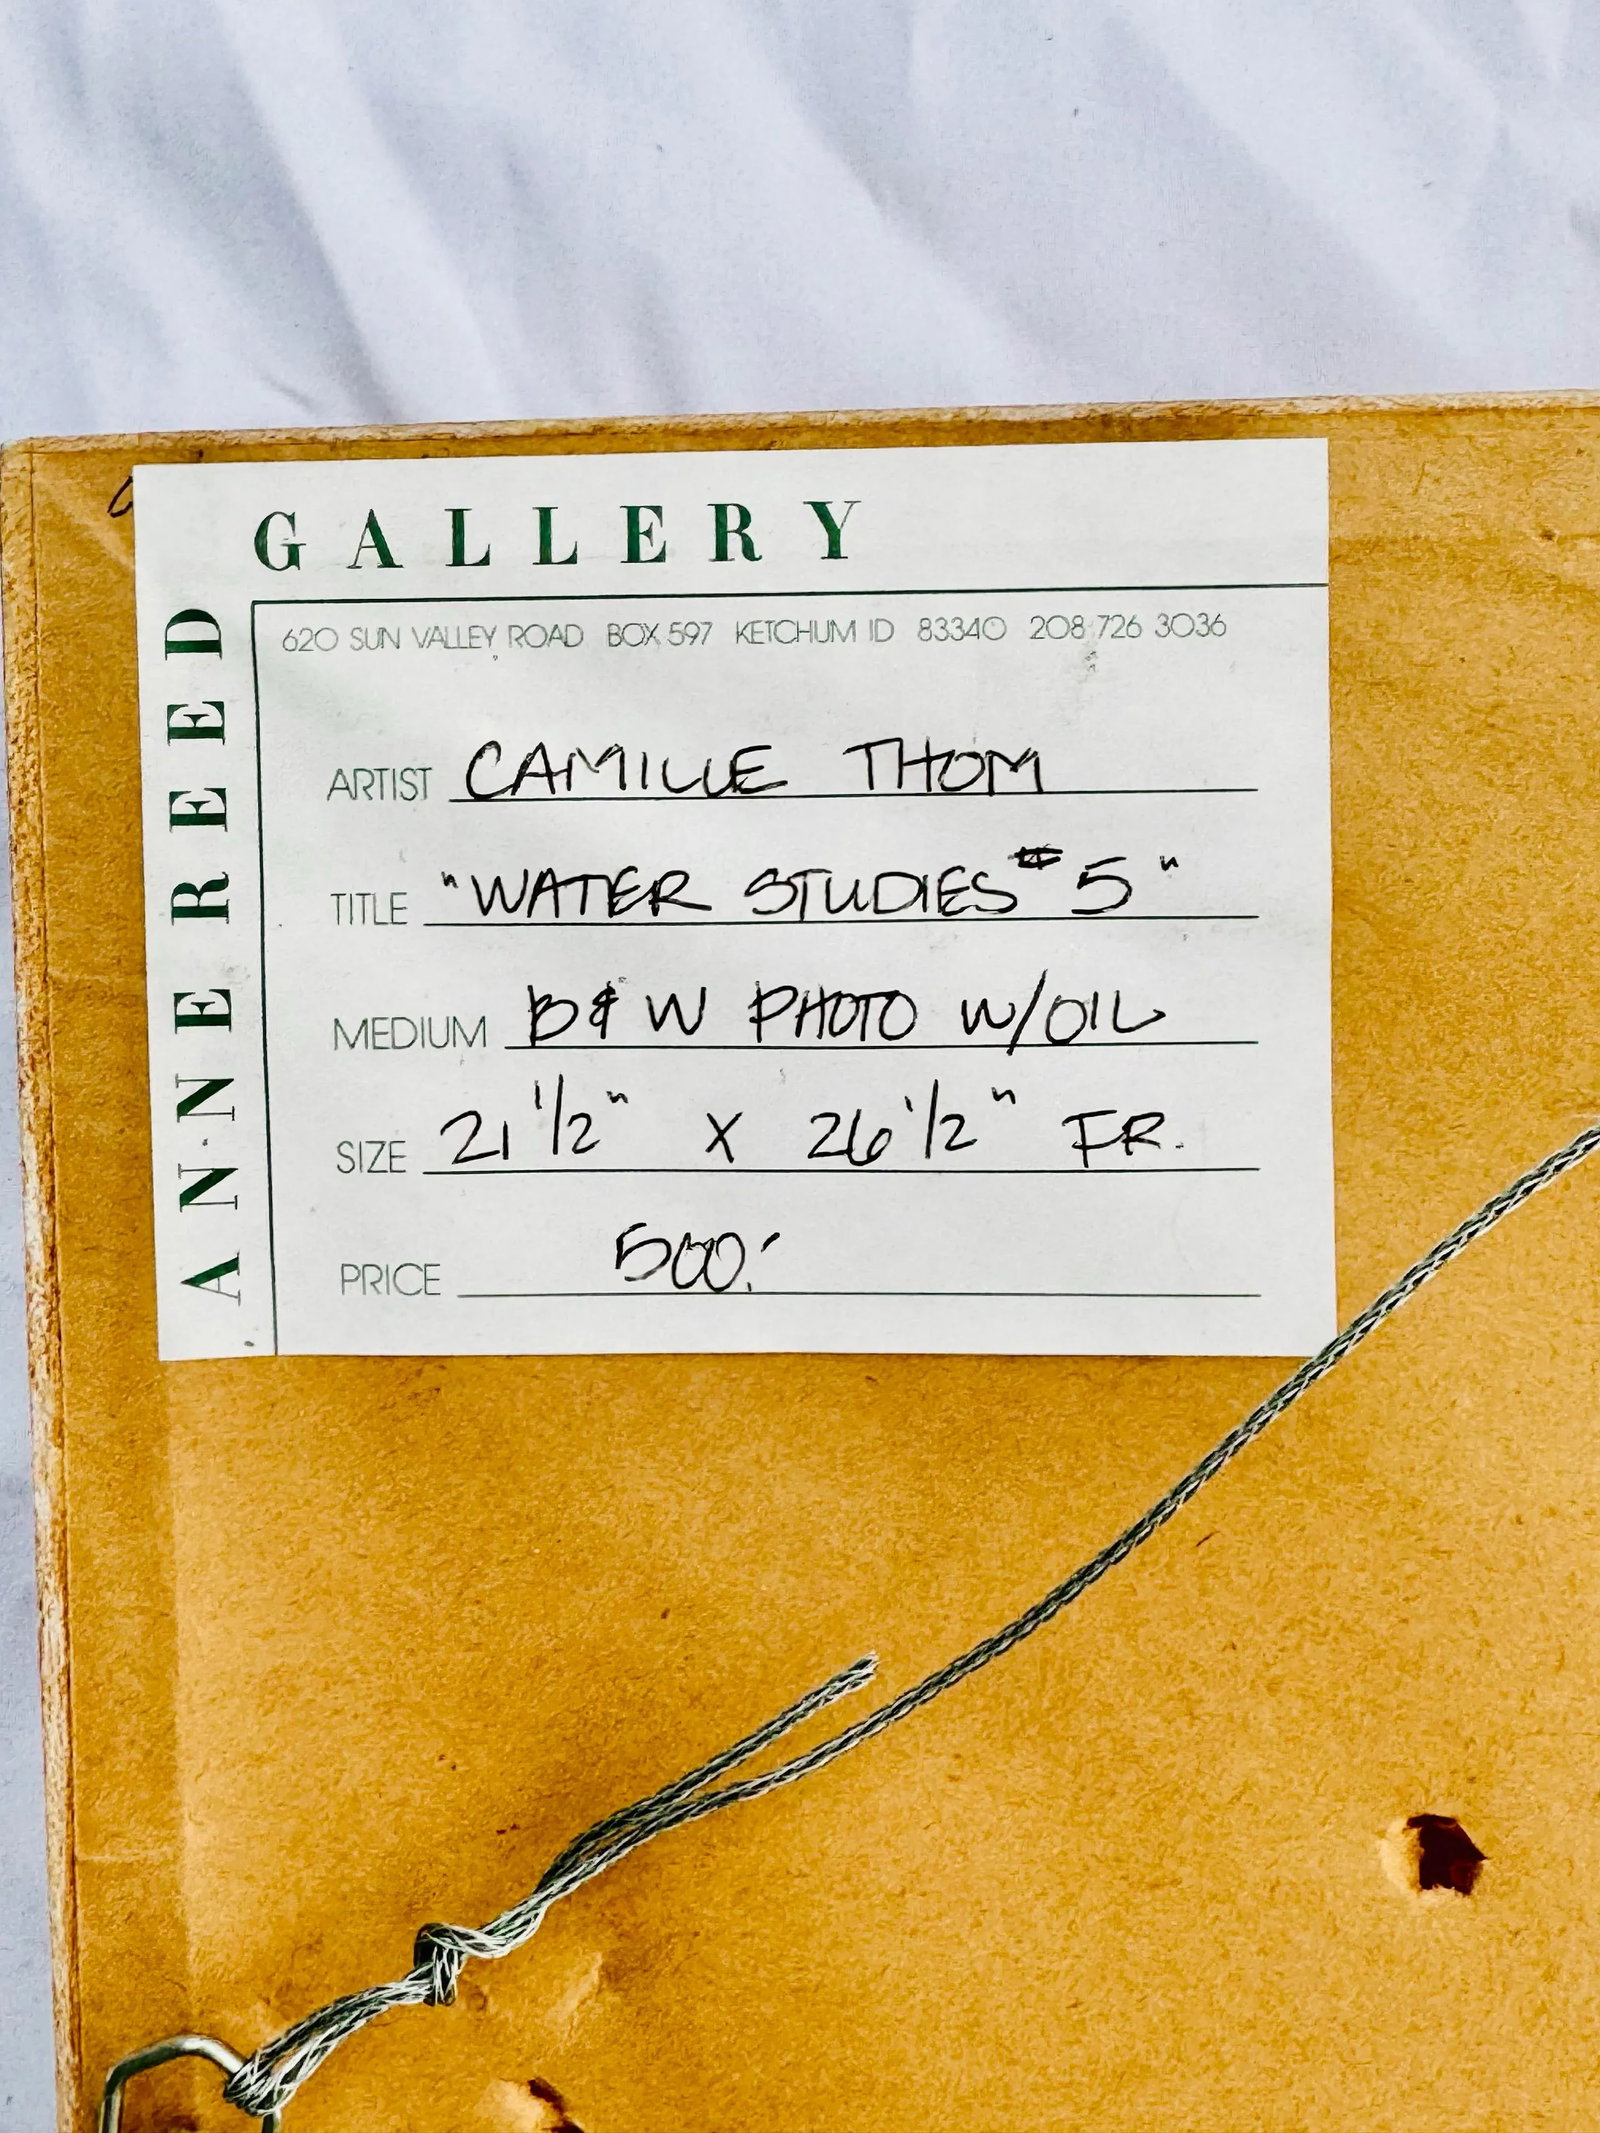 GALLERY
ANNE REED
620 SUN VALLEY ROAD BOX 597 KETCHUM ID 83340 208 726 3036
ARTIST CAMILLE THOM
TITLE "WATER STUDIES #5"
MEDIUM B & W PHOTO W/OIL
SIZE 21 1/2" X 26 1/2" FR.
PRICE 500.-